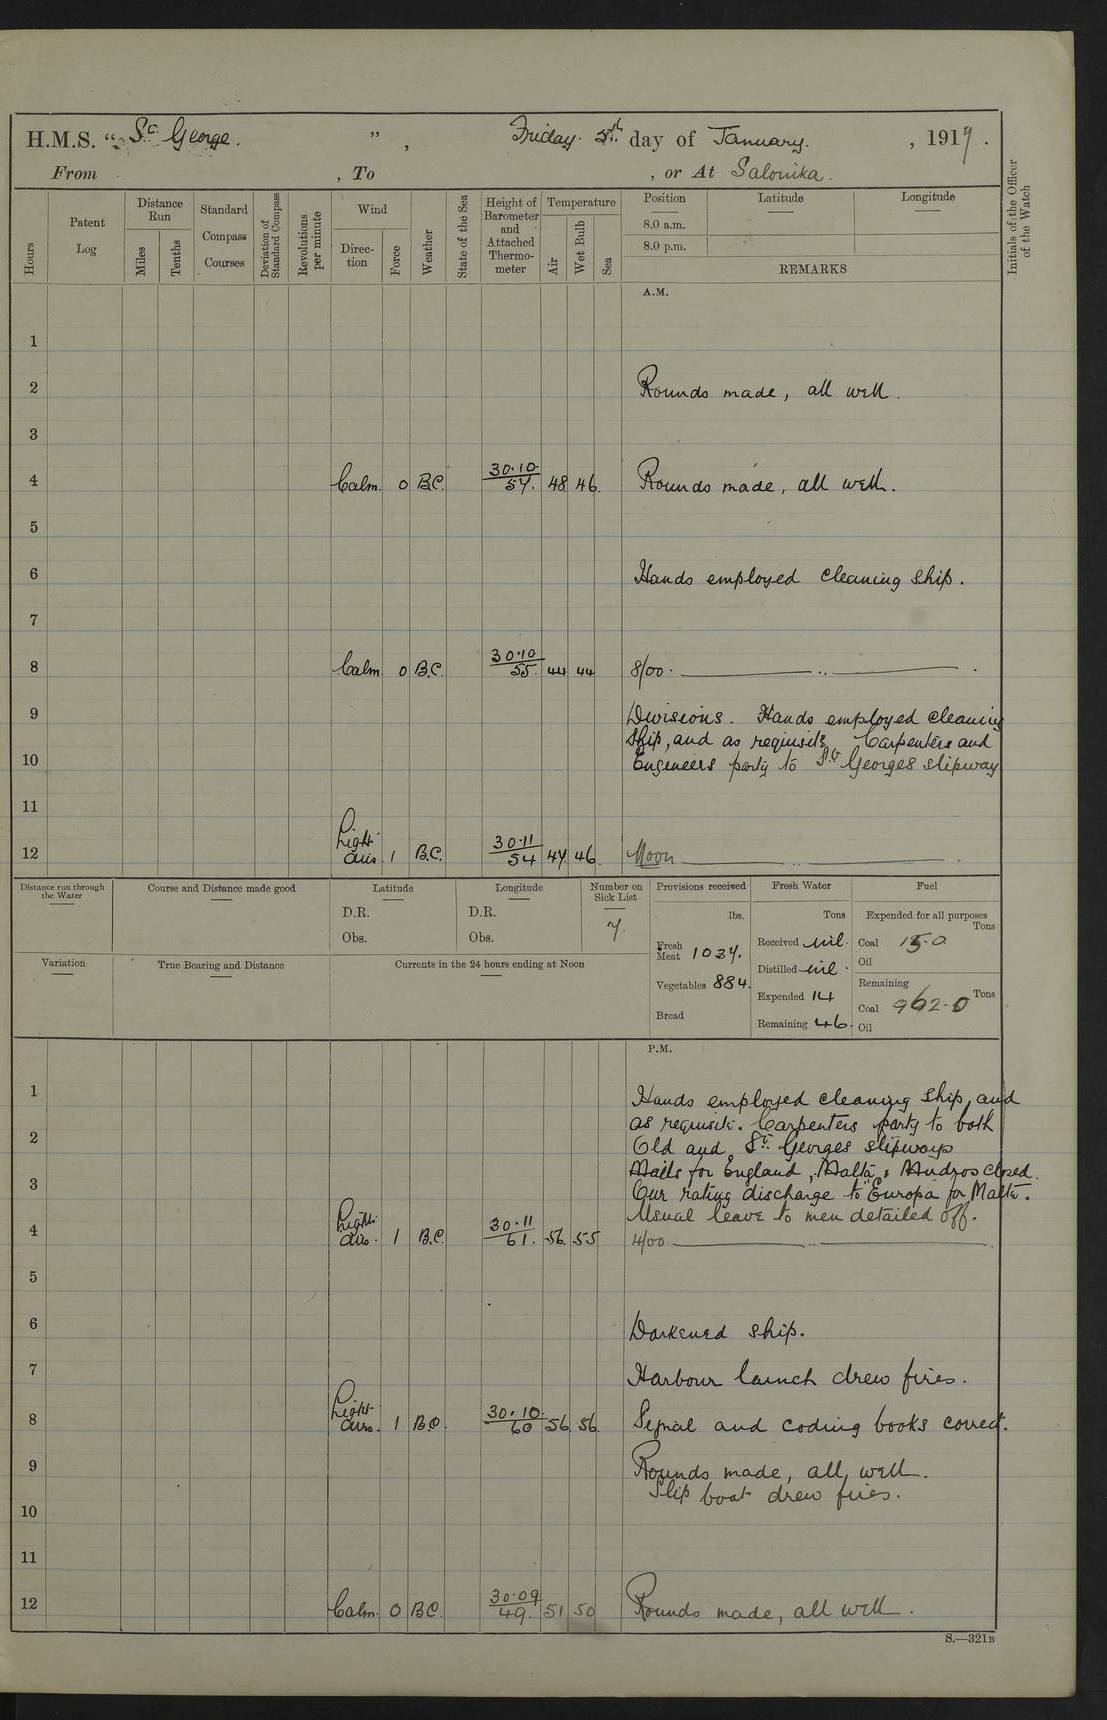 H.M.S. " St George. " , Friday. 5th day of January. , 1917.
From , To , or At Salonika.
Hours
Patent Log
Distance Run
Miles
Tenths
Standard Compass Courses
Deviation of Standard Compass
Revolutions per minute
Wind
Direc-tion
Force
Weather
State of the Sea
Height of Barometer and Attached Thermo-meter
Temperature
Air
Wet Bulb
Sea
Position
8.0 a.m.
8.0 p.m.
Latitude
Longitude
REMARKS
Initials of the Officer of the Watch
A.M.
1
2 Rounds made, all well.
3
4 Calm. 0 B.C. 30.10 57. 48 46. Rounds made, all well.
5
6 Hands employed cleaning ship.
7
8 Calm 0 B.C. 30.10 55. 44 44 8/00.
9 Divisions. Hands employed cleaning
ship, and as requisite, Carpenters and
10 Engineers party to St Georges slipway
11
12 Light airs. 1 B.C. 30.11 54 47 46. Noon
Distance run through the Water
Course and Distance made good
Latitude
D.R.
Obs.
Longitude
D.R.
Obs.
Number on Sick List
7.
Provisions received
lbs.
Fresh Meat 1037.
Vegetables 884.
Bread
Fresh Water
Tons
Received nil.
Distilled nil.
Expended 14
Remaining 46.
Fuel
Expended for all purposes
Tons
Coal 15.0
Oil
Remaining
Tons
Coal 962.0
Oil
Variation
True Bearing and Distance
Currents in the 24 hours ending at Noon
P.M.
1 Hands employed cleaning ship, and
as requisite. Carpenters party to both
2 Old and St. Georges slipways
Mails for England, Malta, & Mudros closed.
3 One rating discharge to "Europa" for Malta.
Usual leave to men detailed off.
4 Light airs. 1 B.C. 30.11 61. 56 55 4/00
5
6 Darkened ship.
7 Harbour launch drew fires.
8 Light airs. 1 B.C. 30.10. 60 56 56. Signal and coding books correct.
9 Rounds made, all well.
Slip boat drew fires.
10
11
12 Calm. 0 B.C. 30.09 49. 51 50 Rounds made, all well.
S.—321B